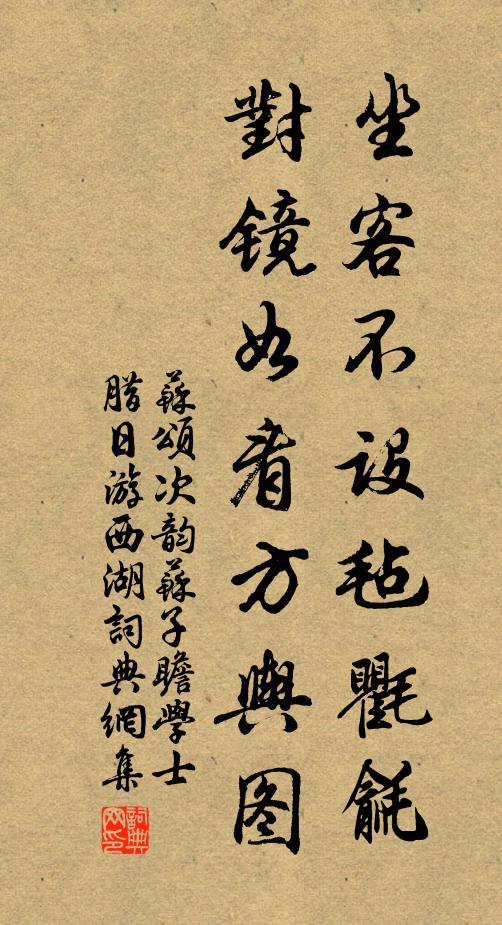 坐客不设毡氍毹
對镜如看方輿图
蘇頌次韵蘇子瞻學士
腊日游西湖詞典網集
詞典
网印